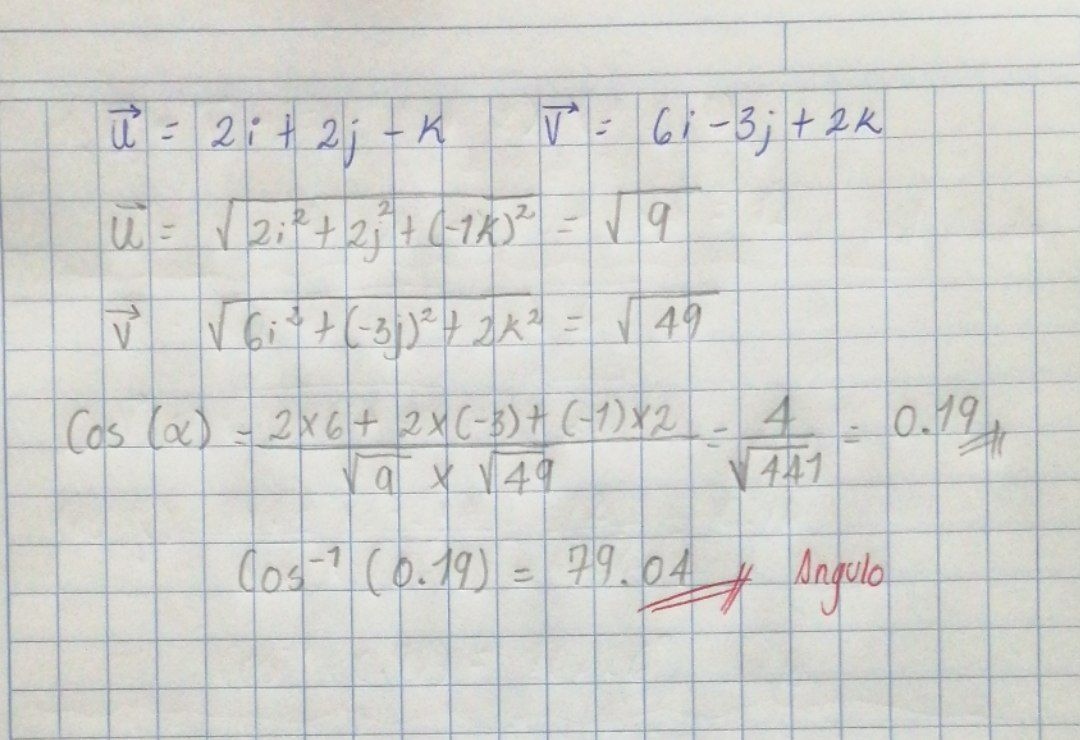 u⃗ = 2i + 2j - k    v⃗ = 6i - 3j + 2k
u⃗ = √(2i² + 2j² + (-1k)²) = √9
v⃗ √(6i² + (-3j)² + 2k²) = √49
Cos (α) = (2×6 + 2×(-3) + (-1)×2) / (√9 × √49) = 4/√441 = 0.19
Cos⁻¹ (0.19) = 79.04 Angulo